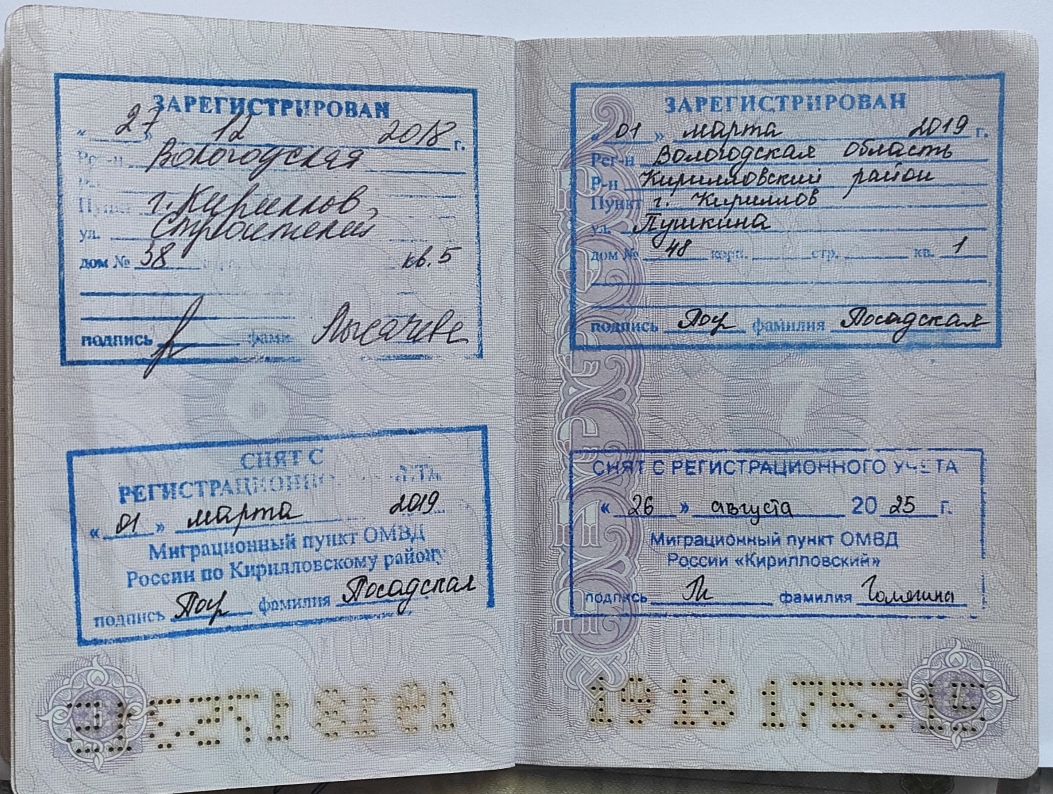 ЗАРЕГИСТРИРОВАН
« 27 » 12 2018 г.
Рег-н Вологодская
Пункт г. Кириллов,
ул. Строителей
дом № 38 кв. 5
подпись фами
6
СНЯТ С
РЕГИСТРАЦИОННО
« 01 » марта 2019
Миграционный пункт ОМВД
России по Кирилловскому району
подпись Пос фамилия Посадская
ЗАРЕГИСТРИРОВАН
« 01 » марта 2019 г.
Рег-н Вологодская область
Р-н Кирилловский район
Пункт г. Кириллов
ул. Пушкина
дом № 48 корп. стр. кв. 1
подпись Пос фамилия Посадская
7
СНЯТ С РЕГИСТРАЦИОННОГО УЧЕТА
« 26 » августа 20 25 г.
Миграционный пункт ОМВД
России «Кирилловский»
подпись фамилия
19 18 1753